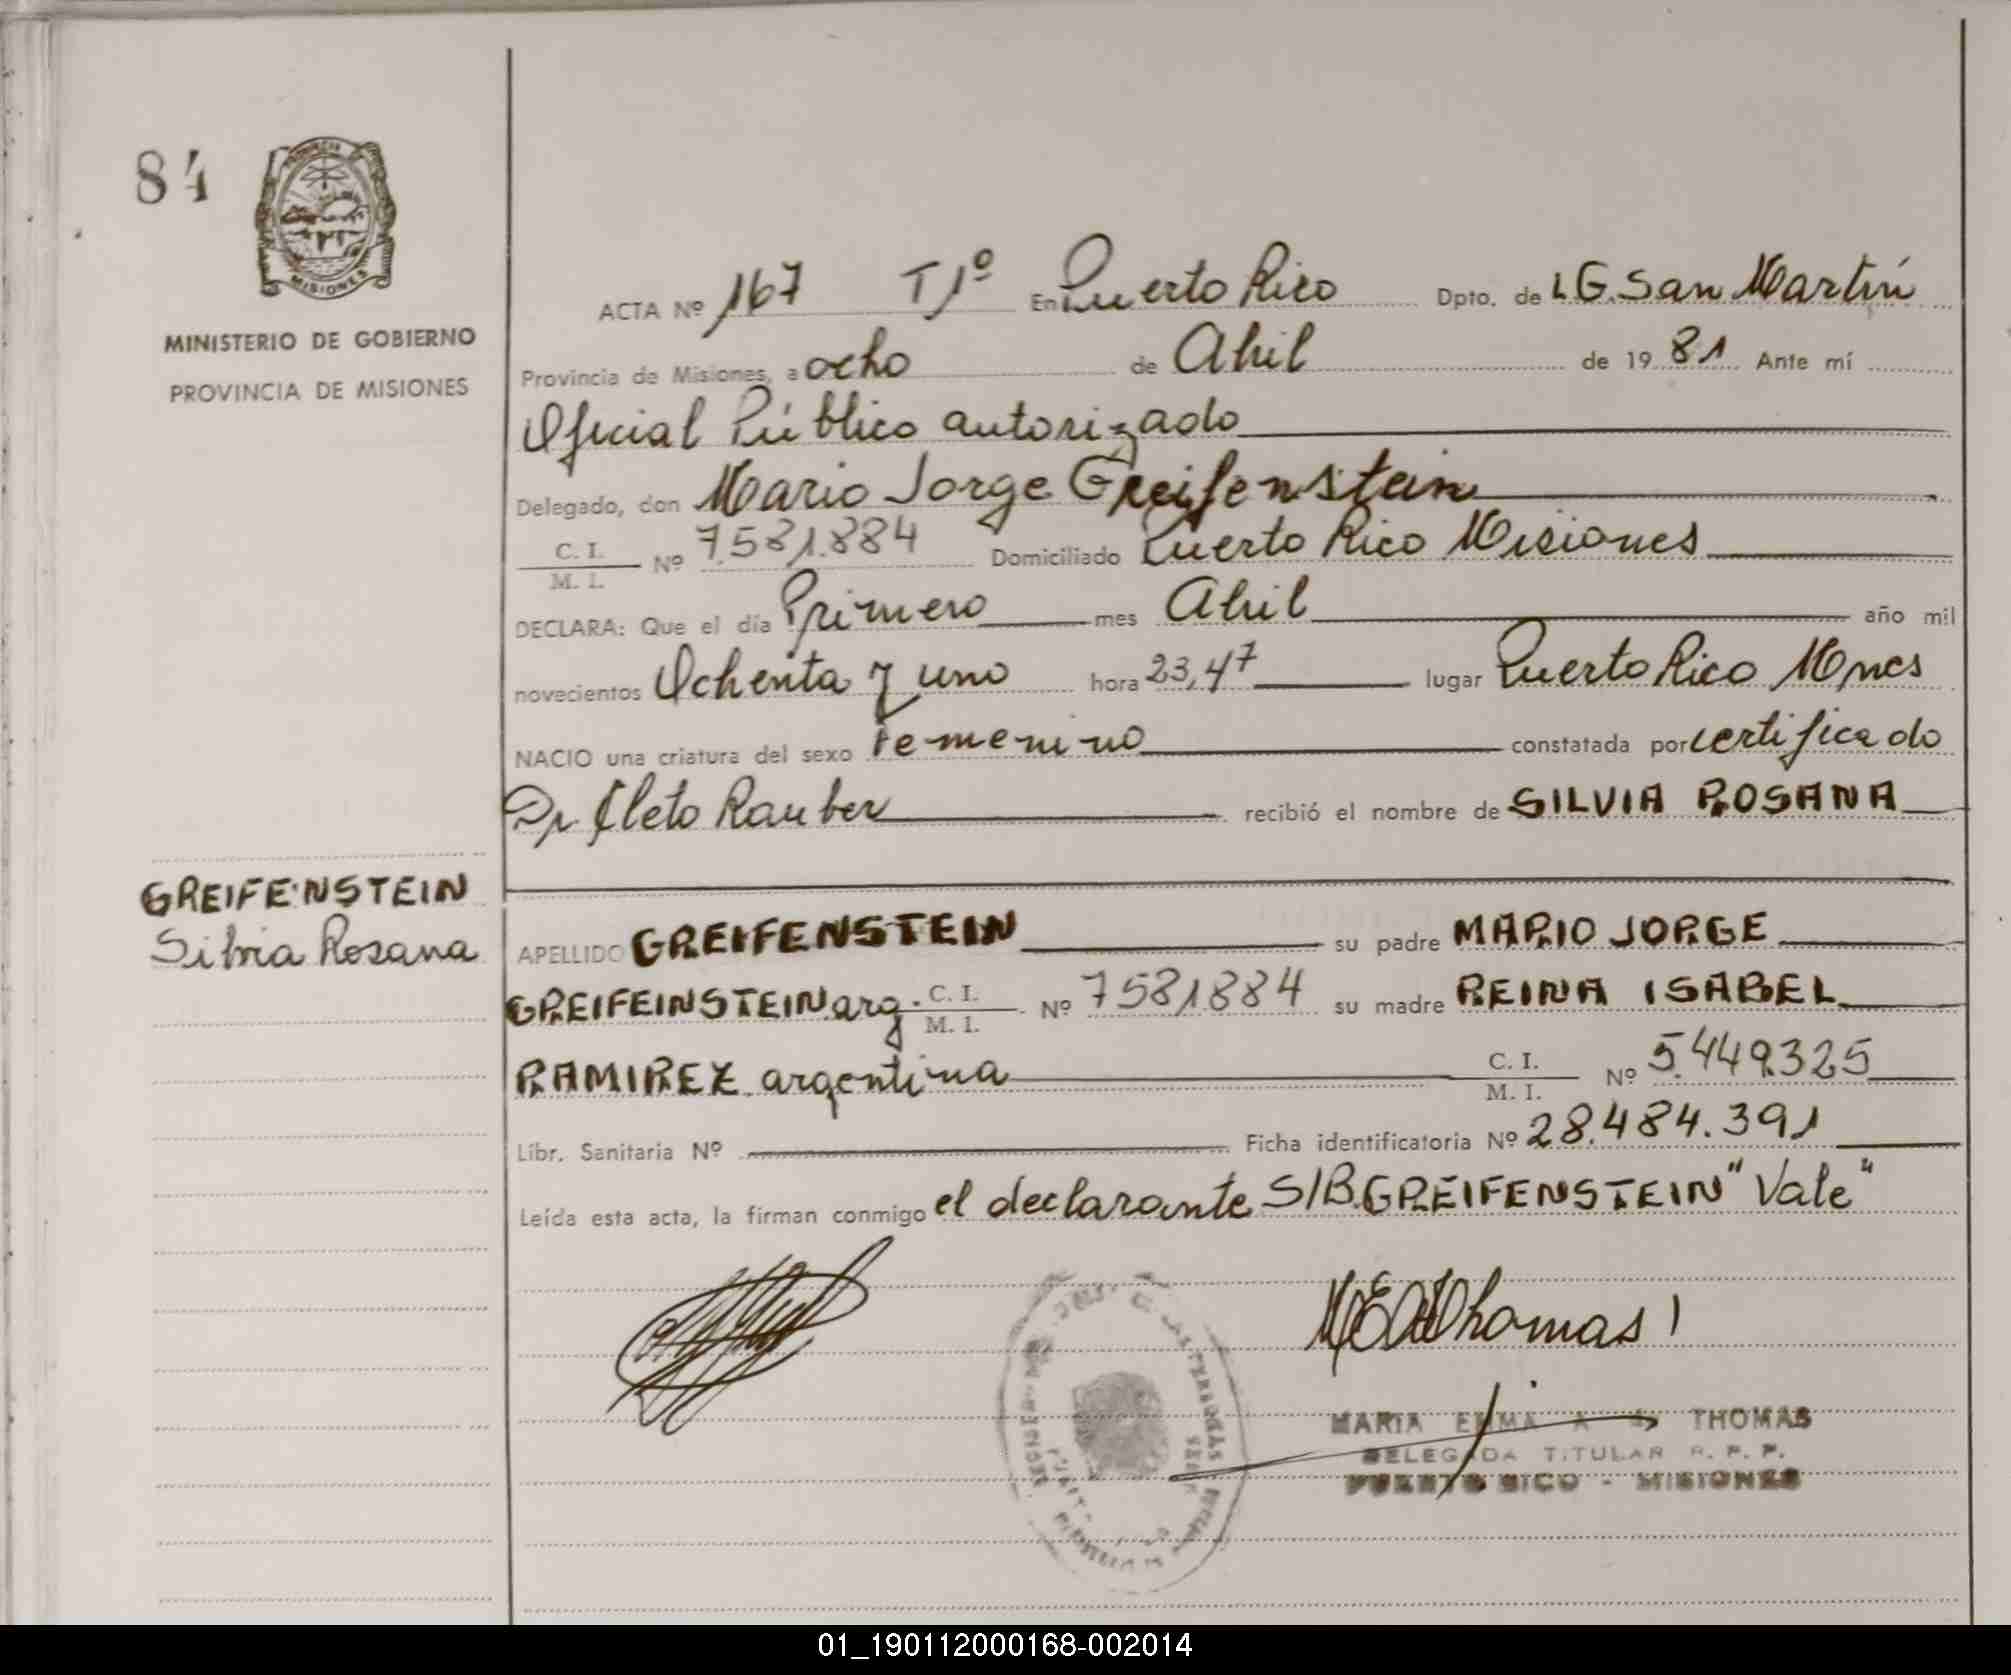 84
MISIONES
MINISTERIO DE GOBIERNO
PROVINCIA DE MISIONES
GREIFENSTEIN
Silvia Rosana
ACTA Nº 167 T1º En Puerto Rico Dpto. de L.G. San Martín
Provincia de Misiones, a ocho de Abril de 1981 Ante mí
Oficial Público autorizado
Delegado, don Mario Jorge Greifenstein
C. I. / M. I. Nº 7581.884 Domiciliado Puerto Rico Misiones
DECLARA: Que el día Primero mes Abril año mil
novecientos Ochenta y uno hora 23,47 lugar Puerto Rico Mnes
NACIO una criatura del sexo Femenino constatada por certificado
Dr Cleto Rauber recibió el nombre de SILVIA ROSANA
APELLIDO GREIFENSTEIN su padre MARIO JORGE
GREIFEINSTEIN arg. C. I. / M. I. Nº 7581884 su madre REINA ISABEL
RAMIREZ argentina C. I. / M. I. Nº 5.449.325
Libr. Sanitaria Nº Ficha identificatoria Nº 28.484.391
Leída esta acta, la firman conmigo el declarante S/B. GREIFENSTEIN "Vale"
Thomas
MARIA EMMA A THOMAS
DELEGADA TITULAR R. P. P.
PUERTO RICO - MISIONES
01_190112000168-002014